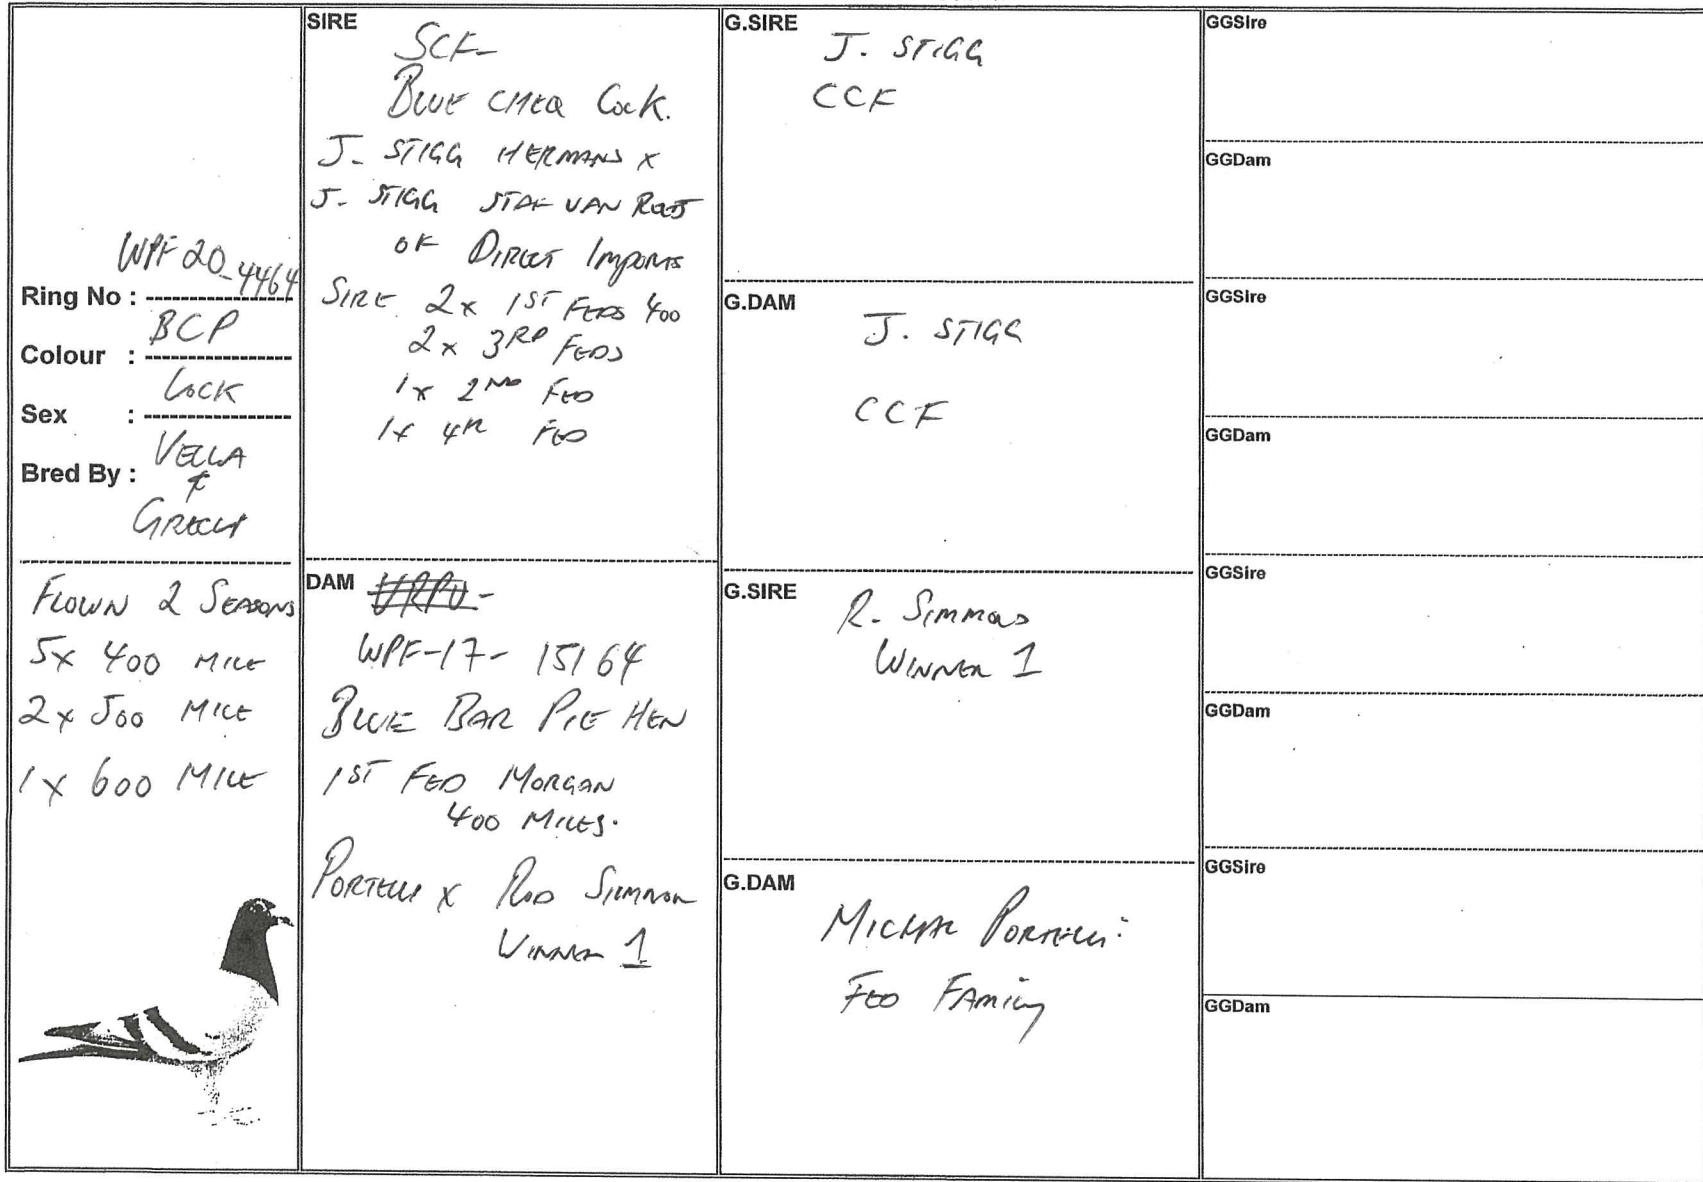 WPF 20-4464
Ring No :
BCP
Colour :
Cock
Sex :
VELLA
Bred By : &
GRECH
FLOWN 2 SEASONS
5x 400 MILE
2x 500 MILE
1x 600 MILE
SIRE
SCF-
BLUE CHEQ COCK.
J. STIGG HERMANS X
J. STIGG STAF VAN REET
OF DIRECT IMPORTS
SIRE 2x 1ST FEDS 400
2x 3RD FEDS
1x 2ND FED
1x 4TH FED
DAM
WPF-17-15164
BLUE BAR PIE HEN
1ST FED MORGAN
400 MILES.
PORTELLI X ROD SIMMON
WINNER 1
G.SIRE
J. STIGG
CCF
G.DAM
J. STIGG
CCF
G.SIRE
R. SIMMONS
WINNER 1
G.DAM
PORTELLI
FED FAMILY
GGSire
GGDam
GGSire
GGDam
GGSire
GGDam
GGSire
GGDam